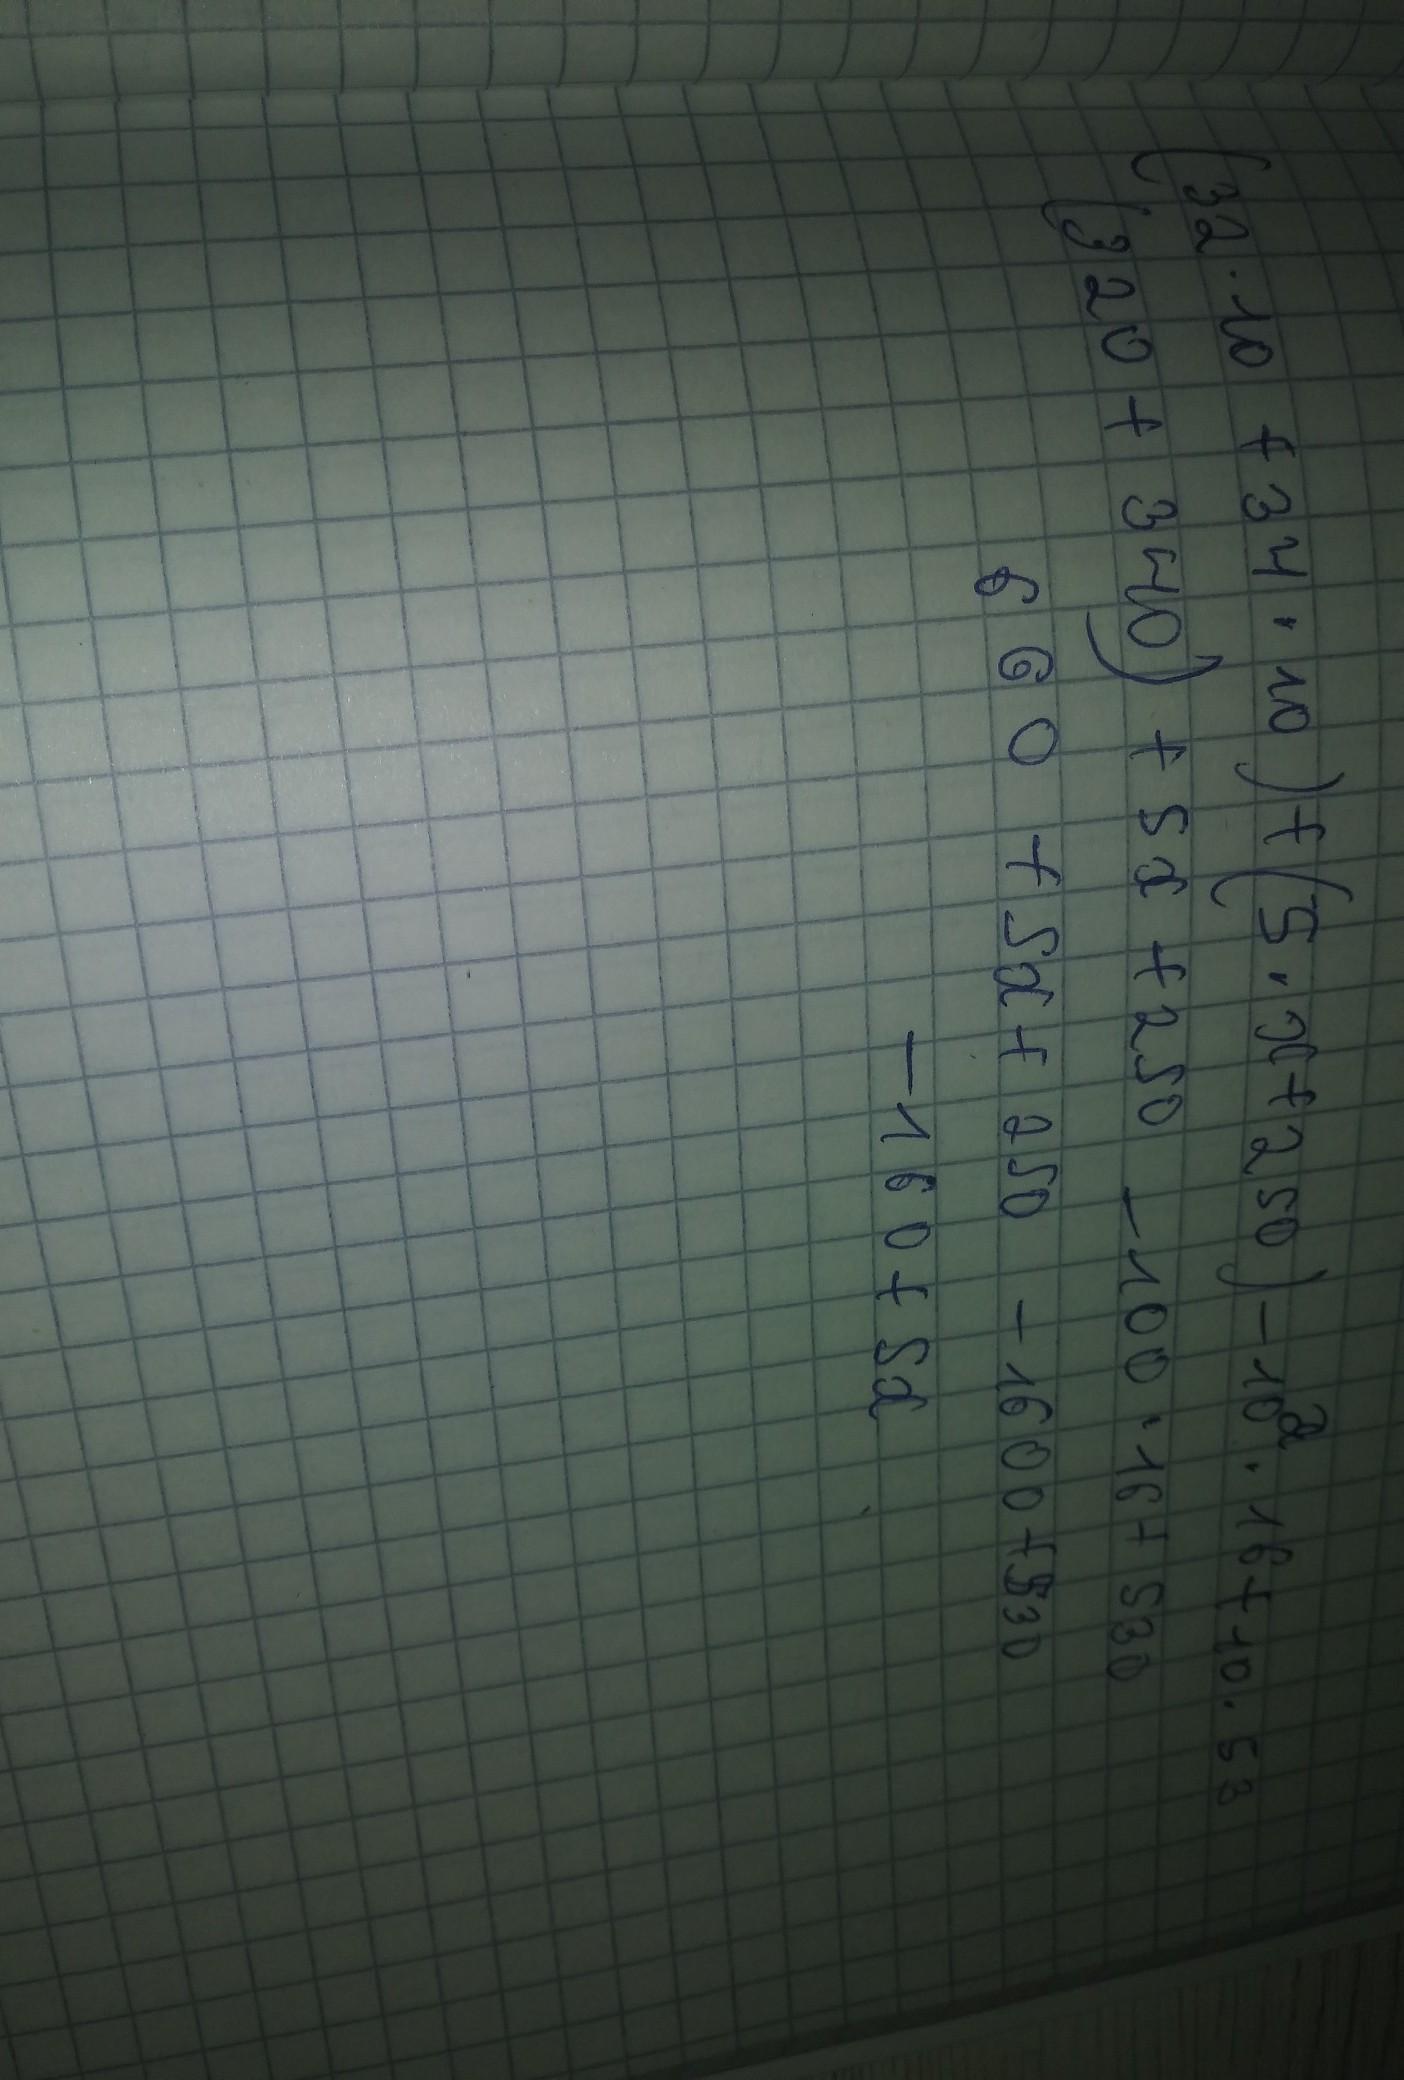 (32·10 + 34·10) + (5·x + 250) - 10²·16 + 10·53
(320 + 340) + 5x + 250 - 100·16 + 530
660 + 5x + 250 - 1600 + 530
-160 + 5x